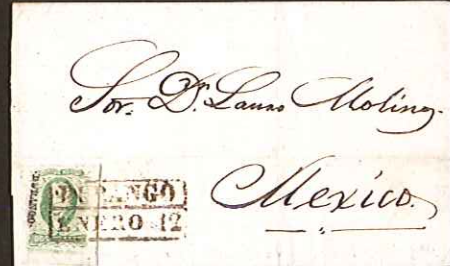 Sor. Dn. Lauro Molina.
Mexico.
DURANGO
ENERO 12